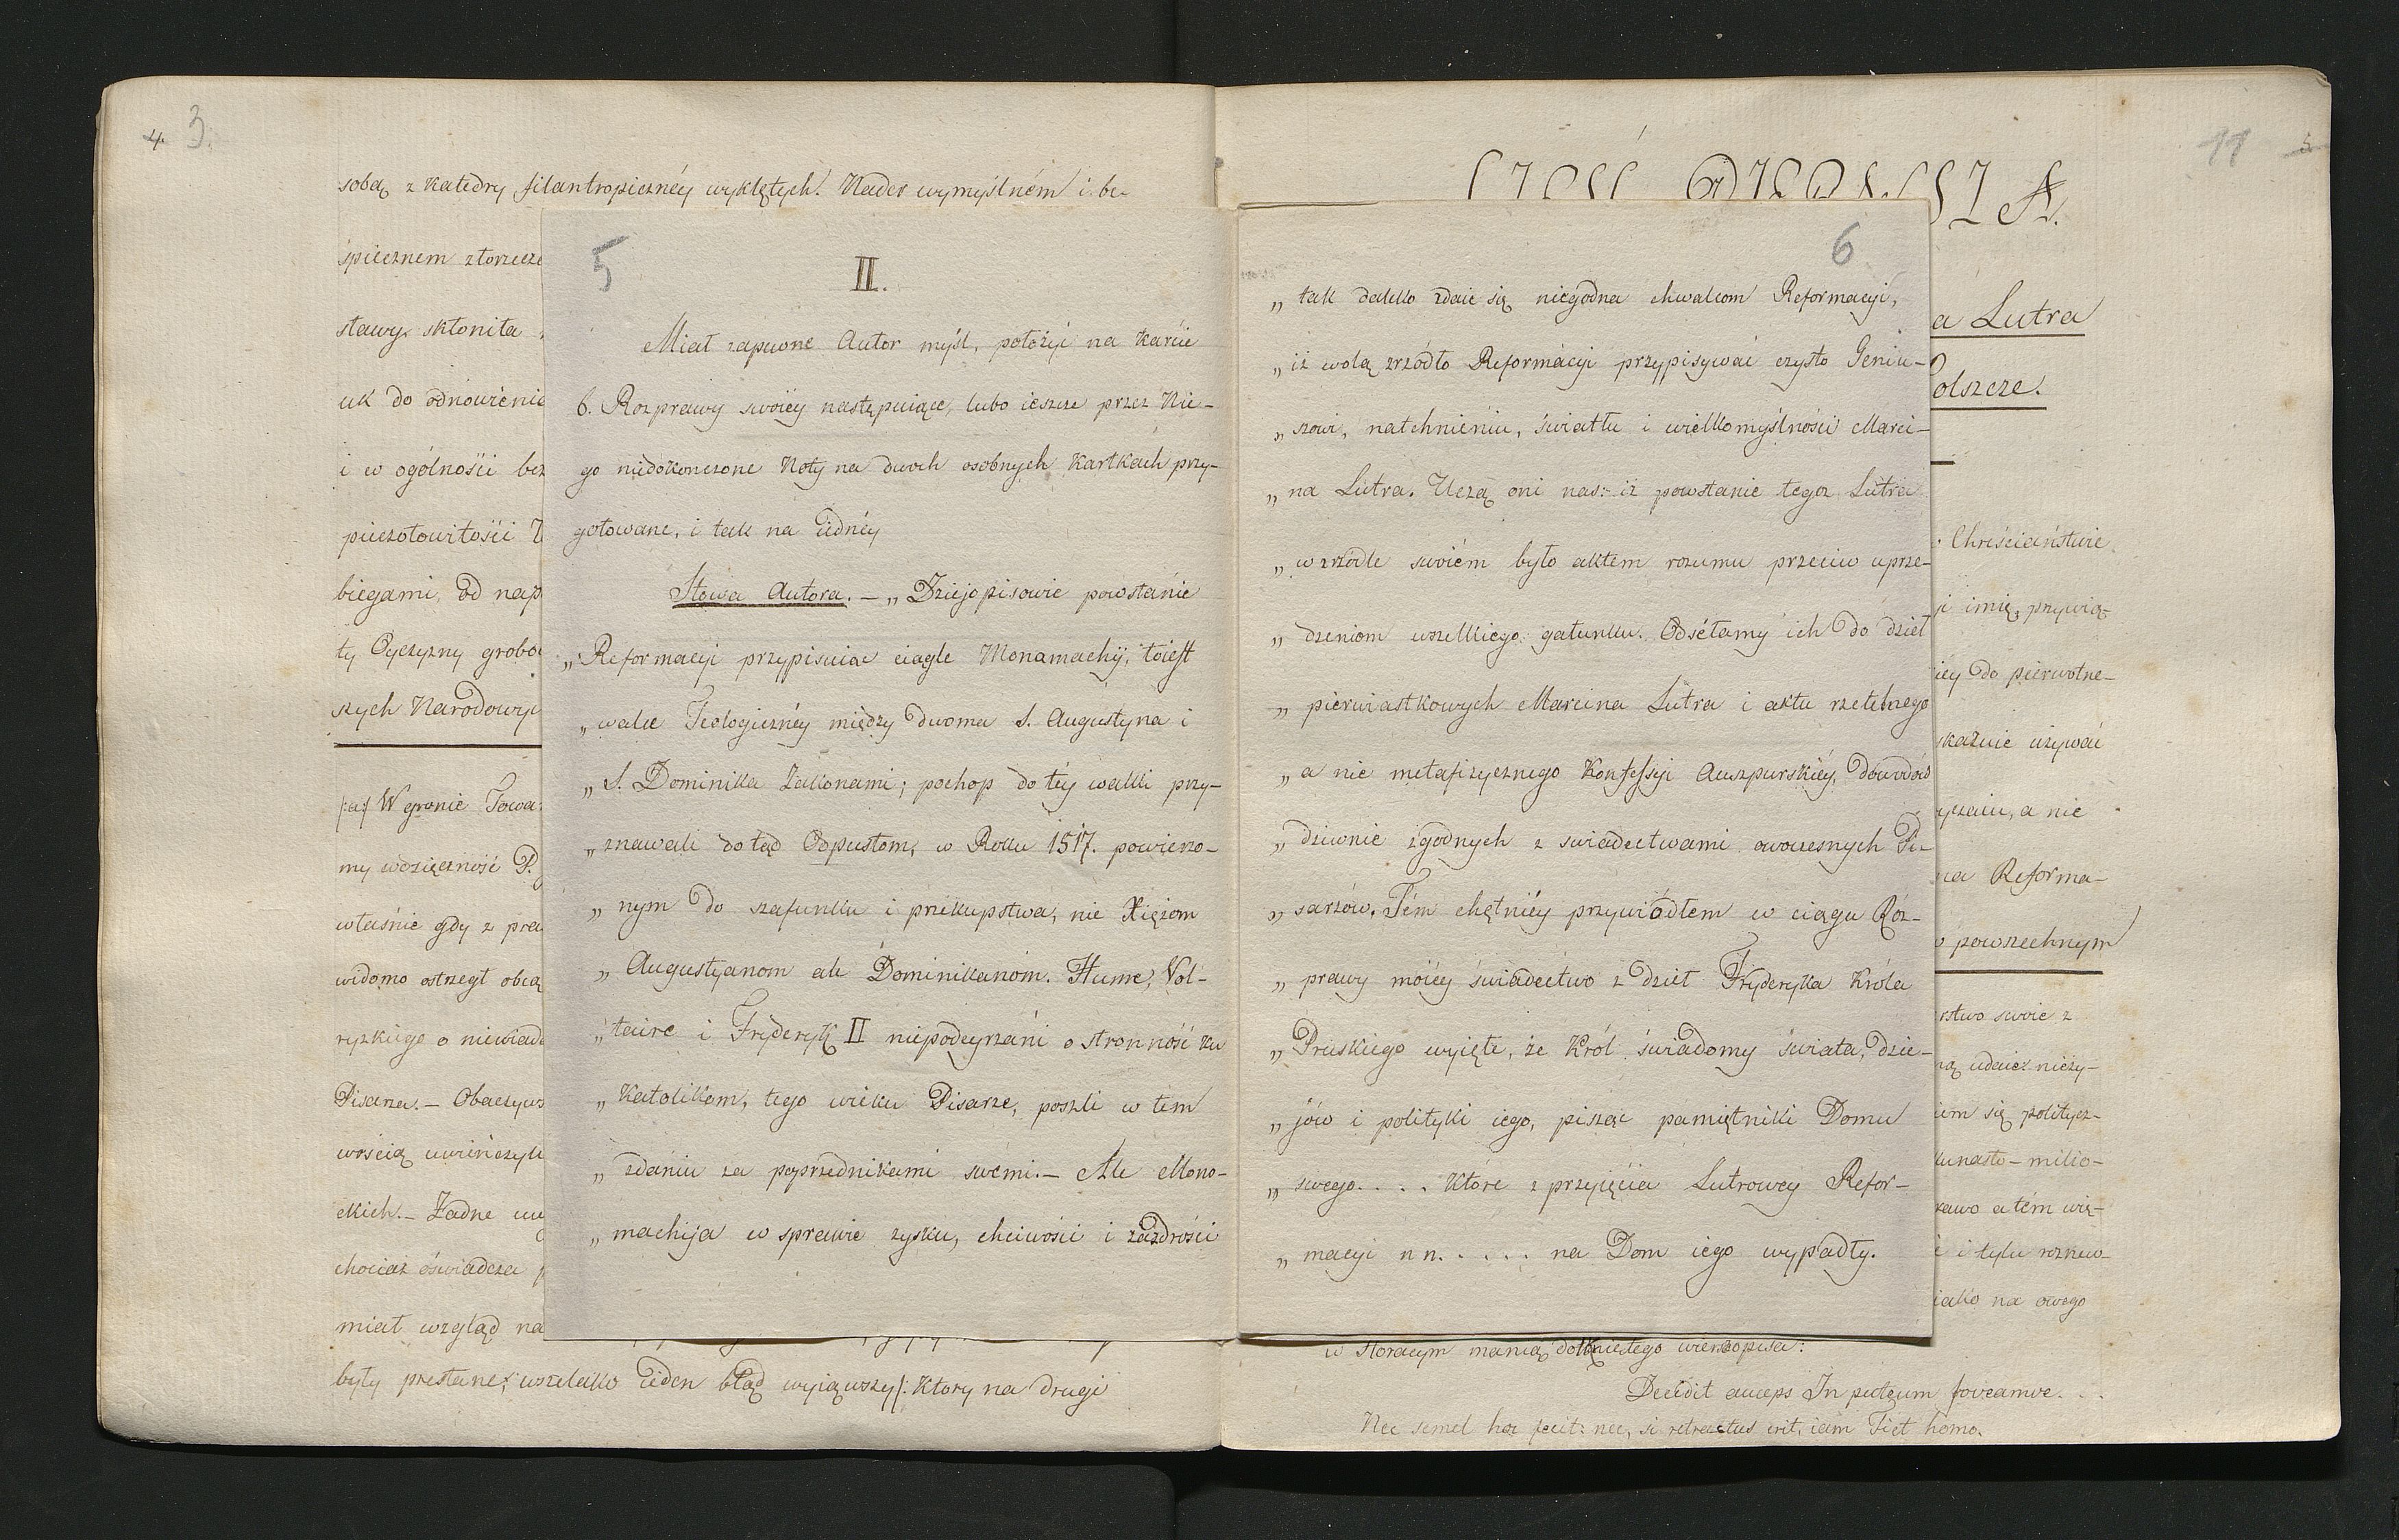 4. 3.
sobą z Katedry filantropicznéy wyklętych. Nader wymyślném i be-
śpiecznem złorzecze
sławy skłoniła
uk do odnowienia
i w ogólności bez
pieczołowitości
biegami, od nap
ty Oyczyzny grobo
szych Narodowy
/:a:/ W gronie Towa
my wdzięczność P.
właśnie gdy z pra
widomo ostrzegł obcą
ryzkiego o niewiado
Pisana.— Obaczyws
wością uwieńczyli
ckich.— Żadne
chociaż oświadcza
miał wzgląd na
były przesłane; wszelako ieden błąd wyiąwszy/: Ktory na drugi
5
II.
Miał zapewne Autor myśl, położyć na Karcie
6. Rozprawy swoiéy następuiące, lubo ieszcze przez Nie-
go niedokonczone Noty na dwoch osobnych Kartkach przy-
gotowane, i tak na iednéy
Słowa Autora.— „Dziejopisowie powstanie
„Reformacyi przypisuiac ciągle Monamachij, toiest
„walce Teologicznéy między dwoma S. Augustyna i
„S. Dominika Zakonami; pochop do téy walki przy-
„znawali dotąd Odpustom, w Roku 1517. powierzo-
„nym do szafunku i przekupstwa, nie Xiężom
„Augustyanom ale Dominikanóm. Hume, Vol-
„taire i Fryderyk II niepodeyrzani o stronność ku
„Katolikom, tego wieku Pisarze, poszli w tem
„zdaniu za poprzednikami swémi.— Ale Mono-
„machija w sprawie zysku, chciwości i zazdrości
6
„tak daleko zdaie się niegodna chwalcom Reformacyi,
„iż wolą zrzódło Reformacyi przypisywać czysto Geniu-
„szowi, natchnieniu, światłu i wielkomyślności Marci-
„na Lutra. Uczą oni nas: iż powstanie tegoz Lutra
„w zrzódle swoiém było aktem rozumu przeciw uprze-
„dzeniom wszelkiego gatunku. Odsełamy ich do dzieł
„pierwiastkowych Marcina Lutra i aktu rzetelnego
„a nie metafizycznego Konfessyi Auszpurskiéy, dowodów
„dziwnie zgodnych z swiadectwami owoczesnych Pi-
„sarzów. Tém chętniéy przywiódłem w ciągu Roz-
„prawy moiéy świadectwo z dzieł Fryderyka Króla
„Pruskiego wyięte, że Król świadomy świata, dzie-
„jów i polityki iego, pisząc pamiętniki Domu
„swego.... Które z przyięcia Lutrowéy Refor-
„macyi n n..... na Dom iego wypadły.
11
a Lutra
olszcze.
Chrześciaństwie
imię, przywią-
iéy do pierwotne-
skazuie używać
yczaiu, a nie
na Reforma-
powszechnym
rstwo swoie z
ną udaiąc nieży-
iem się politycz-
kunasto-milio-
kawo a tém wię-
i tylu roznow-
iako na owego
w Horacym manią dotkniętego wierszopisa:
Decidit auceps In puteum foveamve...
Nec semel hoc fecit: nec, si retractus erit, iam Fiet homo.